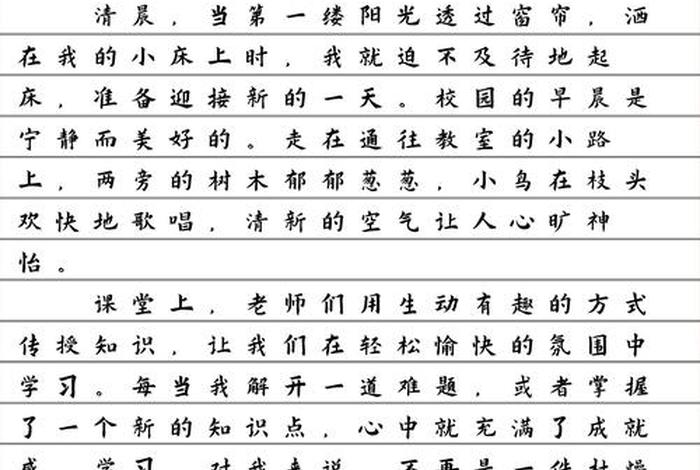 清晨，当第一缕阳光透过窗帘，洒
在我的小床上时，我就迫不及待地起
床，准备迎接新的一天。校园的早晨是
宁静而美好的。走在通往教室的小路
上，两旁的树木郁郁葱葱，小鸟在枝头
欢快地歌唱，清新的空气让人心旷神
怡。
课堂上，老师们用生动有趣的方式
传授知识，让我们在轻松愉快的氛围中
学习。每当我解开一道难题，或者掌握
了一个新的知识点，心中就充满了成就
感。学习，对我来说，不再是一件枯燥